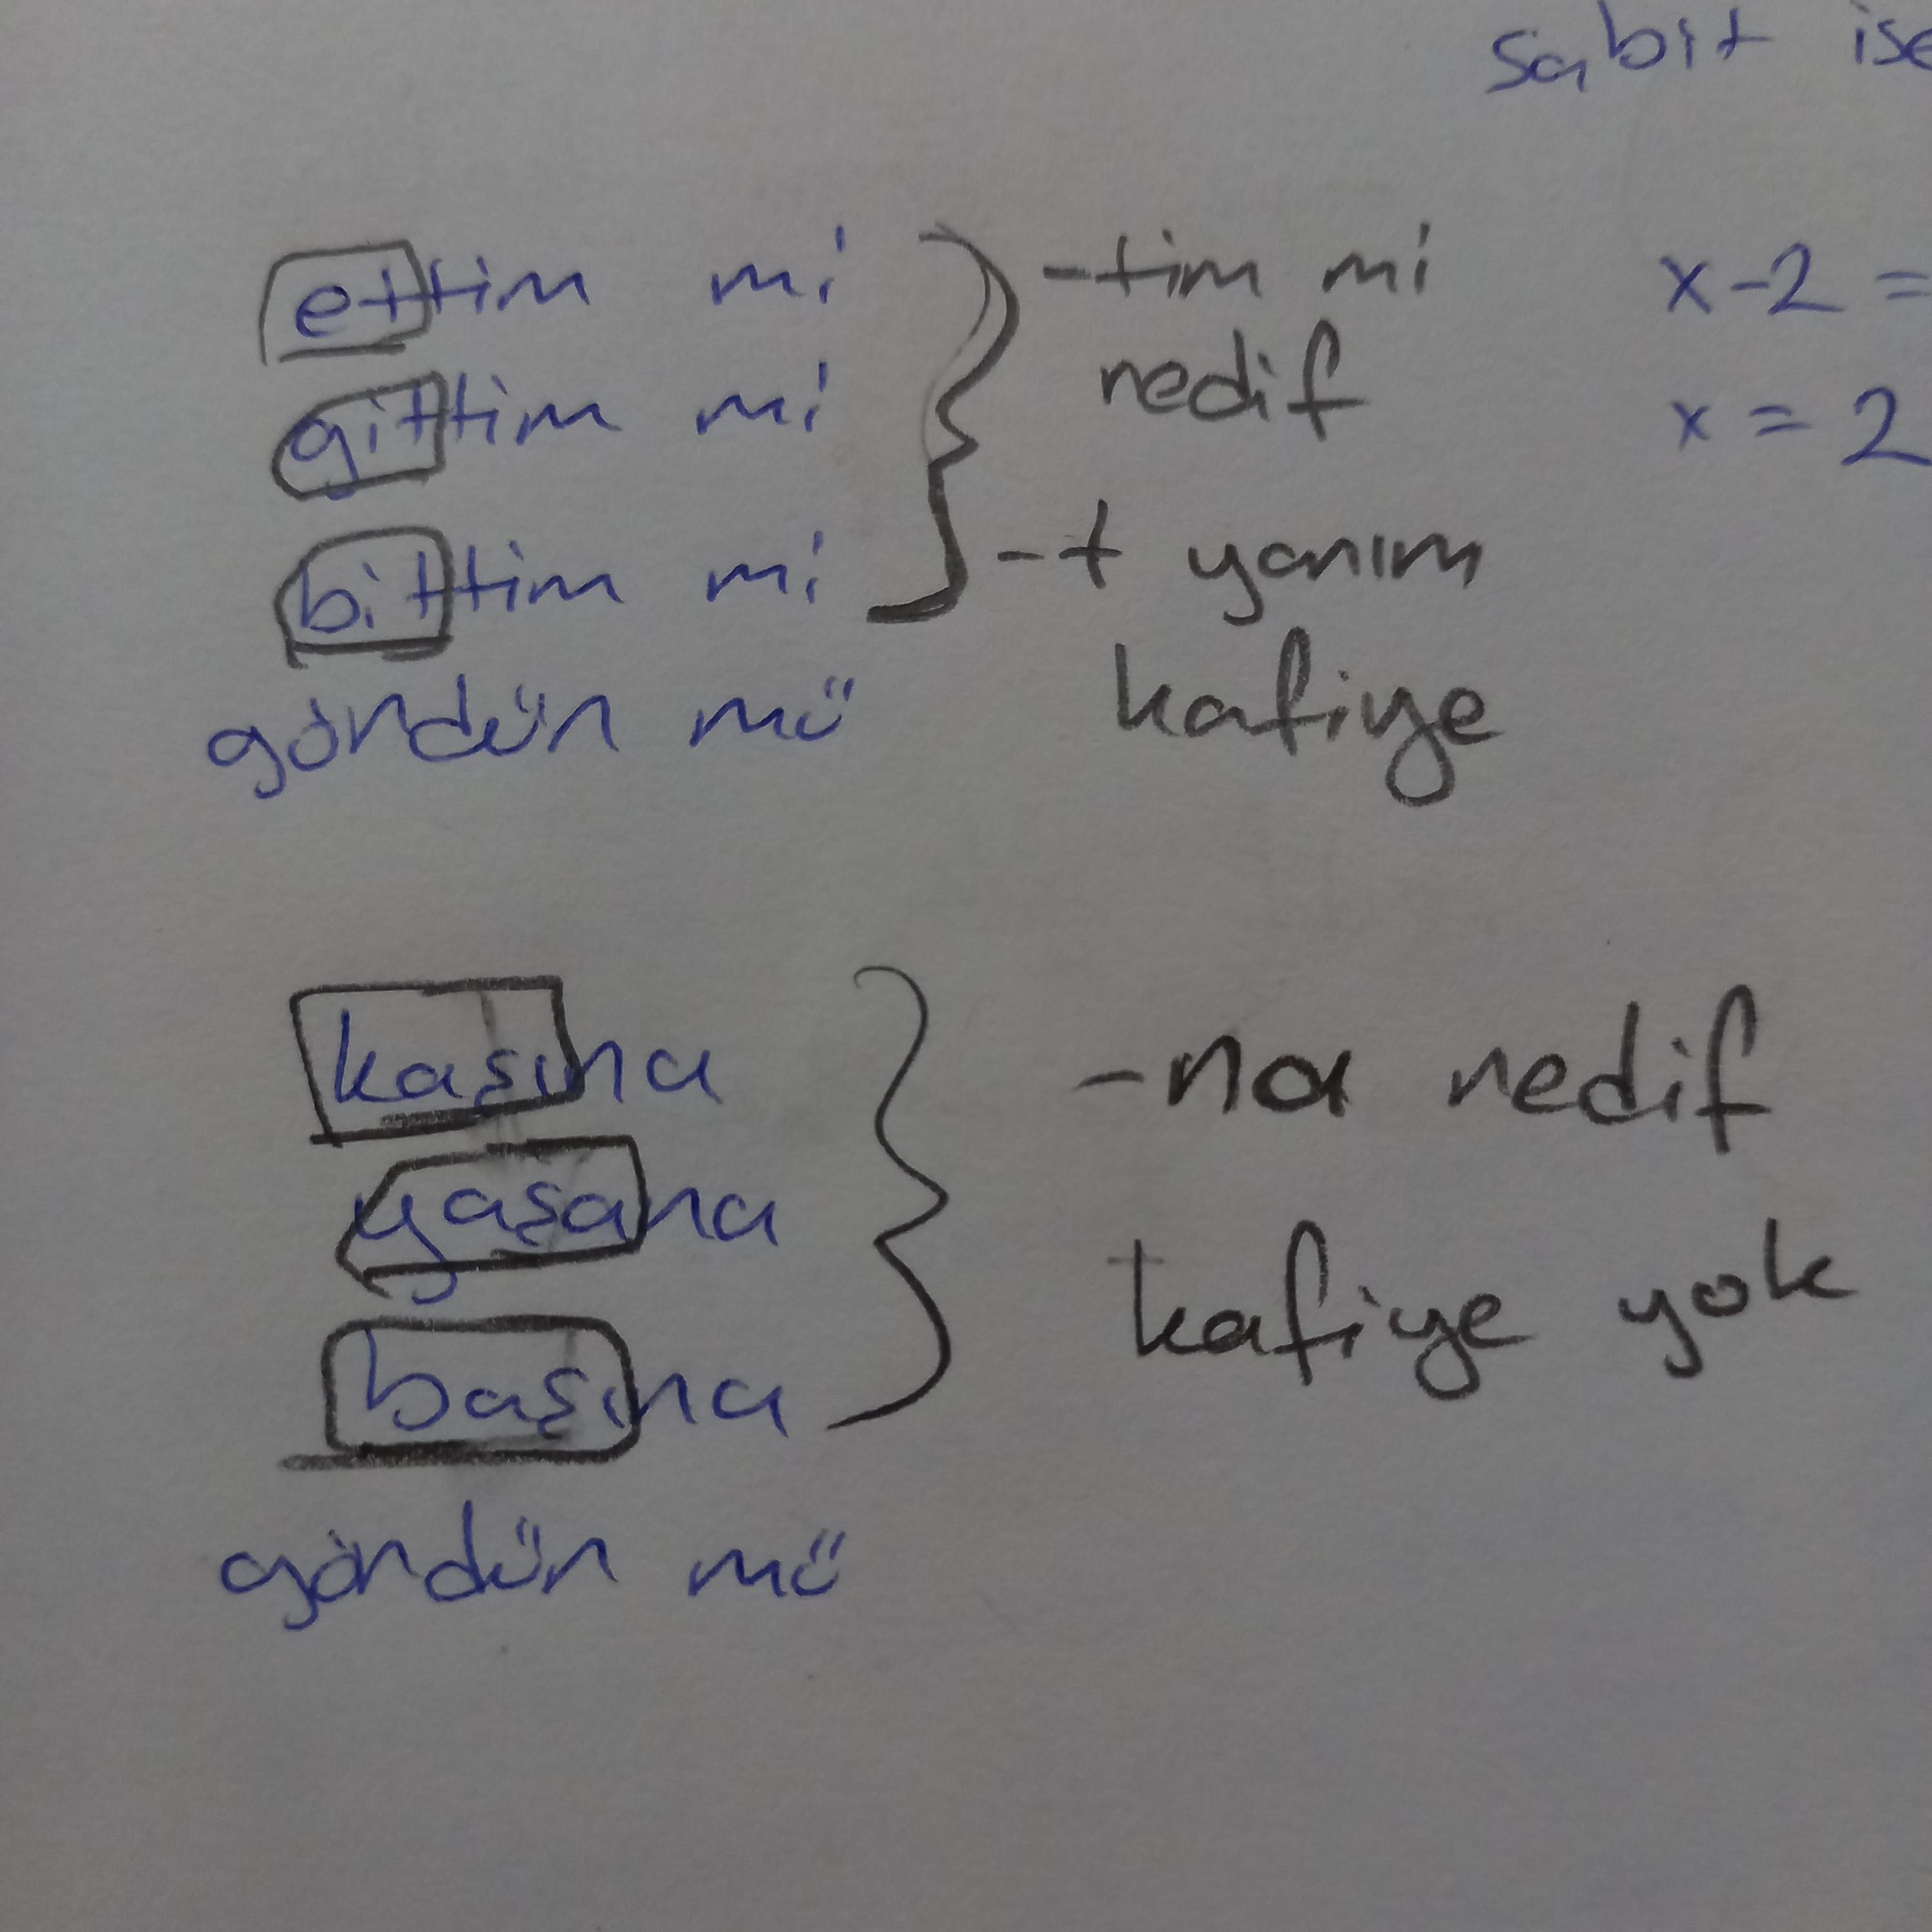 sabit ise
ettim mi
gittim mi
bittim mi
gördün mü
-tim mi
redif
-t yarım
kafiye
x-2 =
x = 2
kaşına
yaşana
başına
gördün mü
-na redif
kafiye yok